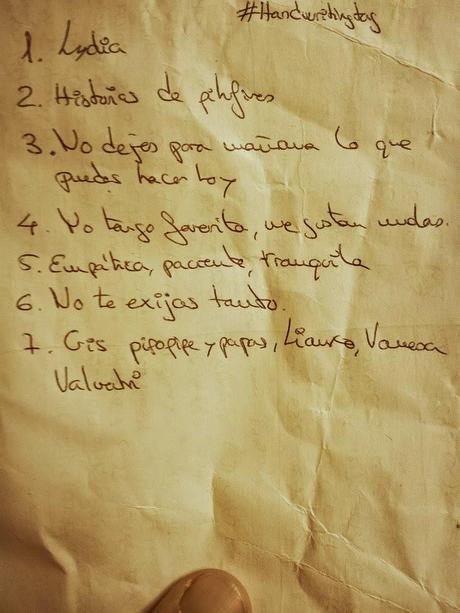 #Handwritingtag
1. Lydia
2. Historias de
3. No dejes para mañana lo que
puedes hacer hoy
4. No tengo favorita, me gustan
5. Empática, paciente, tranquila
6. No te exijas tanto.
7. Cris y papas, Vanessa